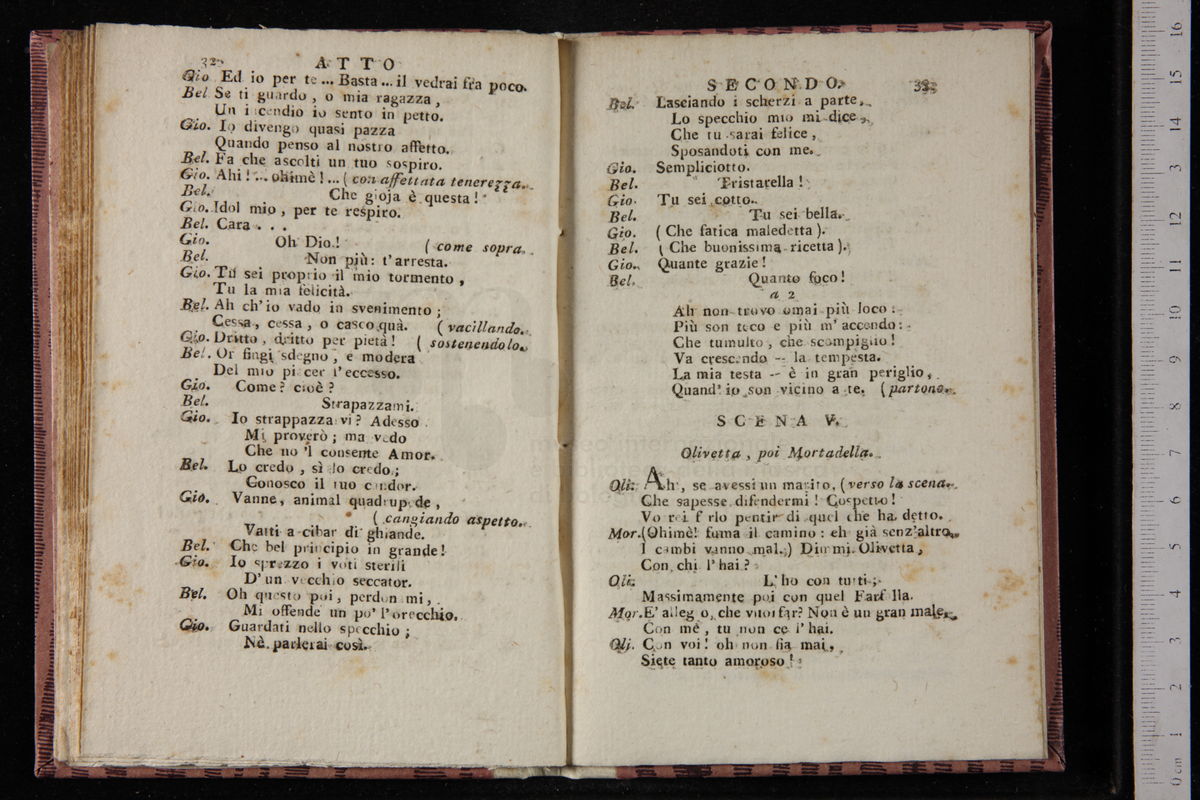 32 ATTO
Gio Ed io per te ... Basta ... il vedrai fra poco.
Bel Se ti guardo , o mia ragazza ,
Un incendio io sento in petto.
Gio. Io divengo quasi pazza
Quando penso al nostro affetto.
Bel. Fa che ascolti un tuo sospiro.
Gio. Ahi ! ... ohimè ! ... ( con affettata tenerezza.
Bel. Che gioja è questa !
Gio. Idol mio , per te respiro.
Bel. Cara . . .
Gio. Oh Dio ! ( come sopra.
Bel. Non più : t'arresta.
Gio. Tu sei proprio il mio tormento ,
Tu la mia felicità.
Bel. Ah ch'io vado in svenimento ;
Cessa , cessa , o casco quà. ( vacillando.
Gio. Dritto , dritto per pietà ! ( sostenendolo.
Bel. Or fingi sdegno , e modera
Del mio piacer l'eccesso.
Gio. Come ? cioè ?
Bel. Strapazzami.
Gio. Io strappazzarvi ? Adesso
Mi proverò ; ma vedo
Che no 'l consente Amor.
Bel. Lo credo , sì lo credo ;
Conosco il tuo candor.
Gio. Vanne , animal quadrupede ,
( cangiando aspetto.
Vatti a cibar di ghiande.
Bel. Che bel principio in grande !
Gio. Io sprezzo i voti sterili
D'un vecchio seccator.
Bel. Oh questo poi , perdonami ,
Mi offende un po' l'orecchio.
Gio. Guardati nello specchio ;
Nè parlerai così.
SECONDO. 33
Bel. Lasciando i scherzi a parte ,
Lo specchio mio mi dice ,
Che tu sarai felice ,
Sposandoti con me.
Gio. Sempliciotto.
Bel. Tristarella !
Gio. Tu sei cotto.
Bel. Tu sei bella.
Gio. ( Che fatica maledetta ).
Bel. ( Che buonissima ricetta ).
Gio. Quante grazie !
Bel. Quanto foco !
a 2
Ah non trovo omai più loco :
Più son teco e più m'accendo :
Che tumulto , che scompiglio !
Va crescendo -- la tempesta.
La mia testa -- è in gran periglio ,
Quand' io son vicino a te. ( partono.
SCENA V.
Olivetta , poi Mortadella.
Oli. Ah , se avessi un marito , ( verso la scena.
Che sapesse difendermi ! Cospetto !
Vorrei farlo pentir di quel che ha detto.
Mor. (Ohimè! fuma il camino : eh già senz'altro
I cambi vanno mal.) Dimmi Olivetta ,
Con chi l'hai ?
Oli. L'ho con tutti ;
Massimamente poi con quel Farfalla.
Mor. E' allegro , che vuoi far? Non è un gran male.
Con me , tu non ce l'hai.
Oli. Con voi ! oh non fia mai ,
Siete tanto amoroso !